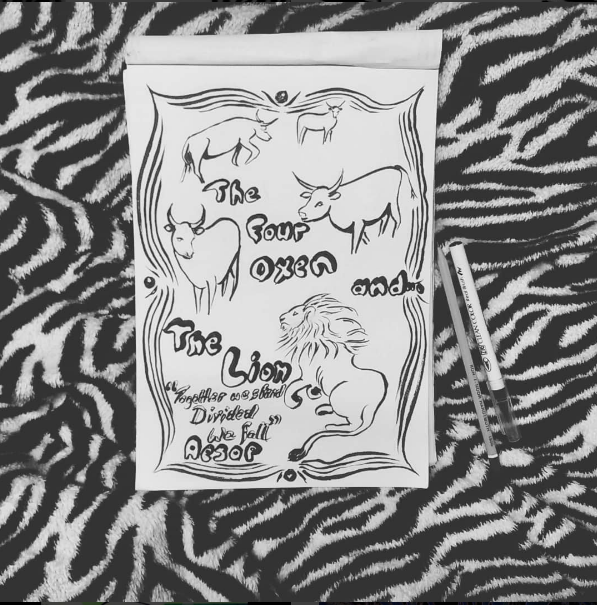 The
Four
Oxen
and...
The
Lion
"Together we stand
Divided
We fall"
Aesop